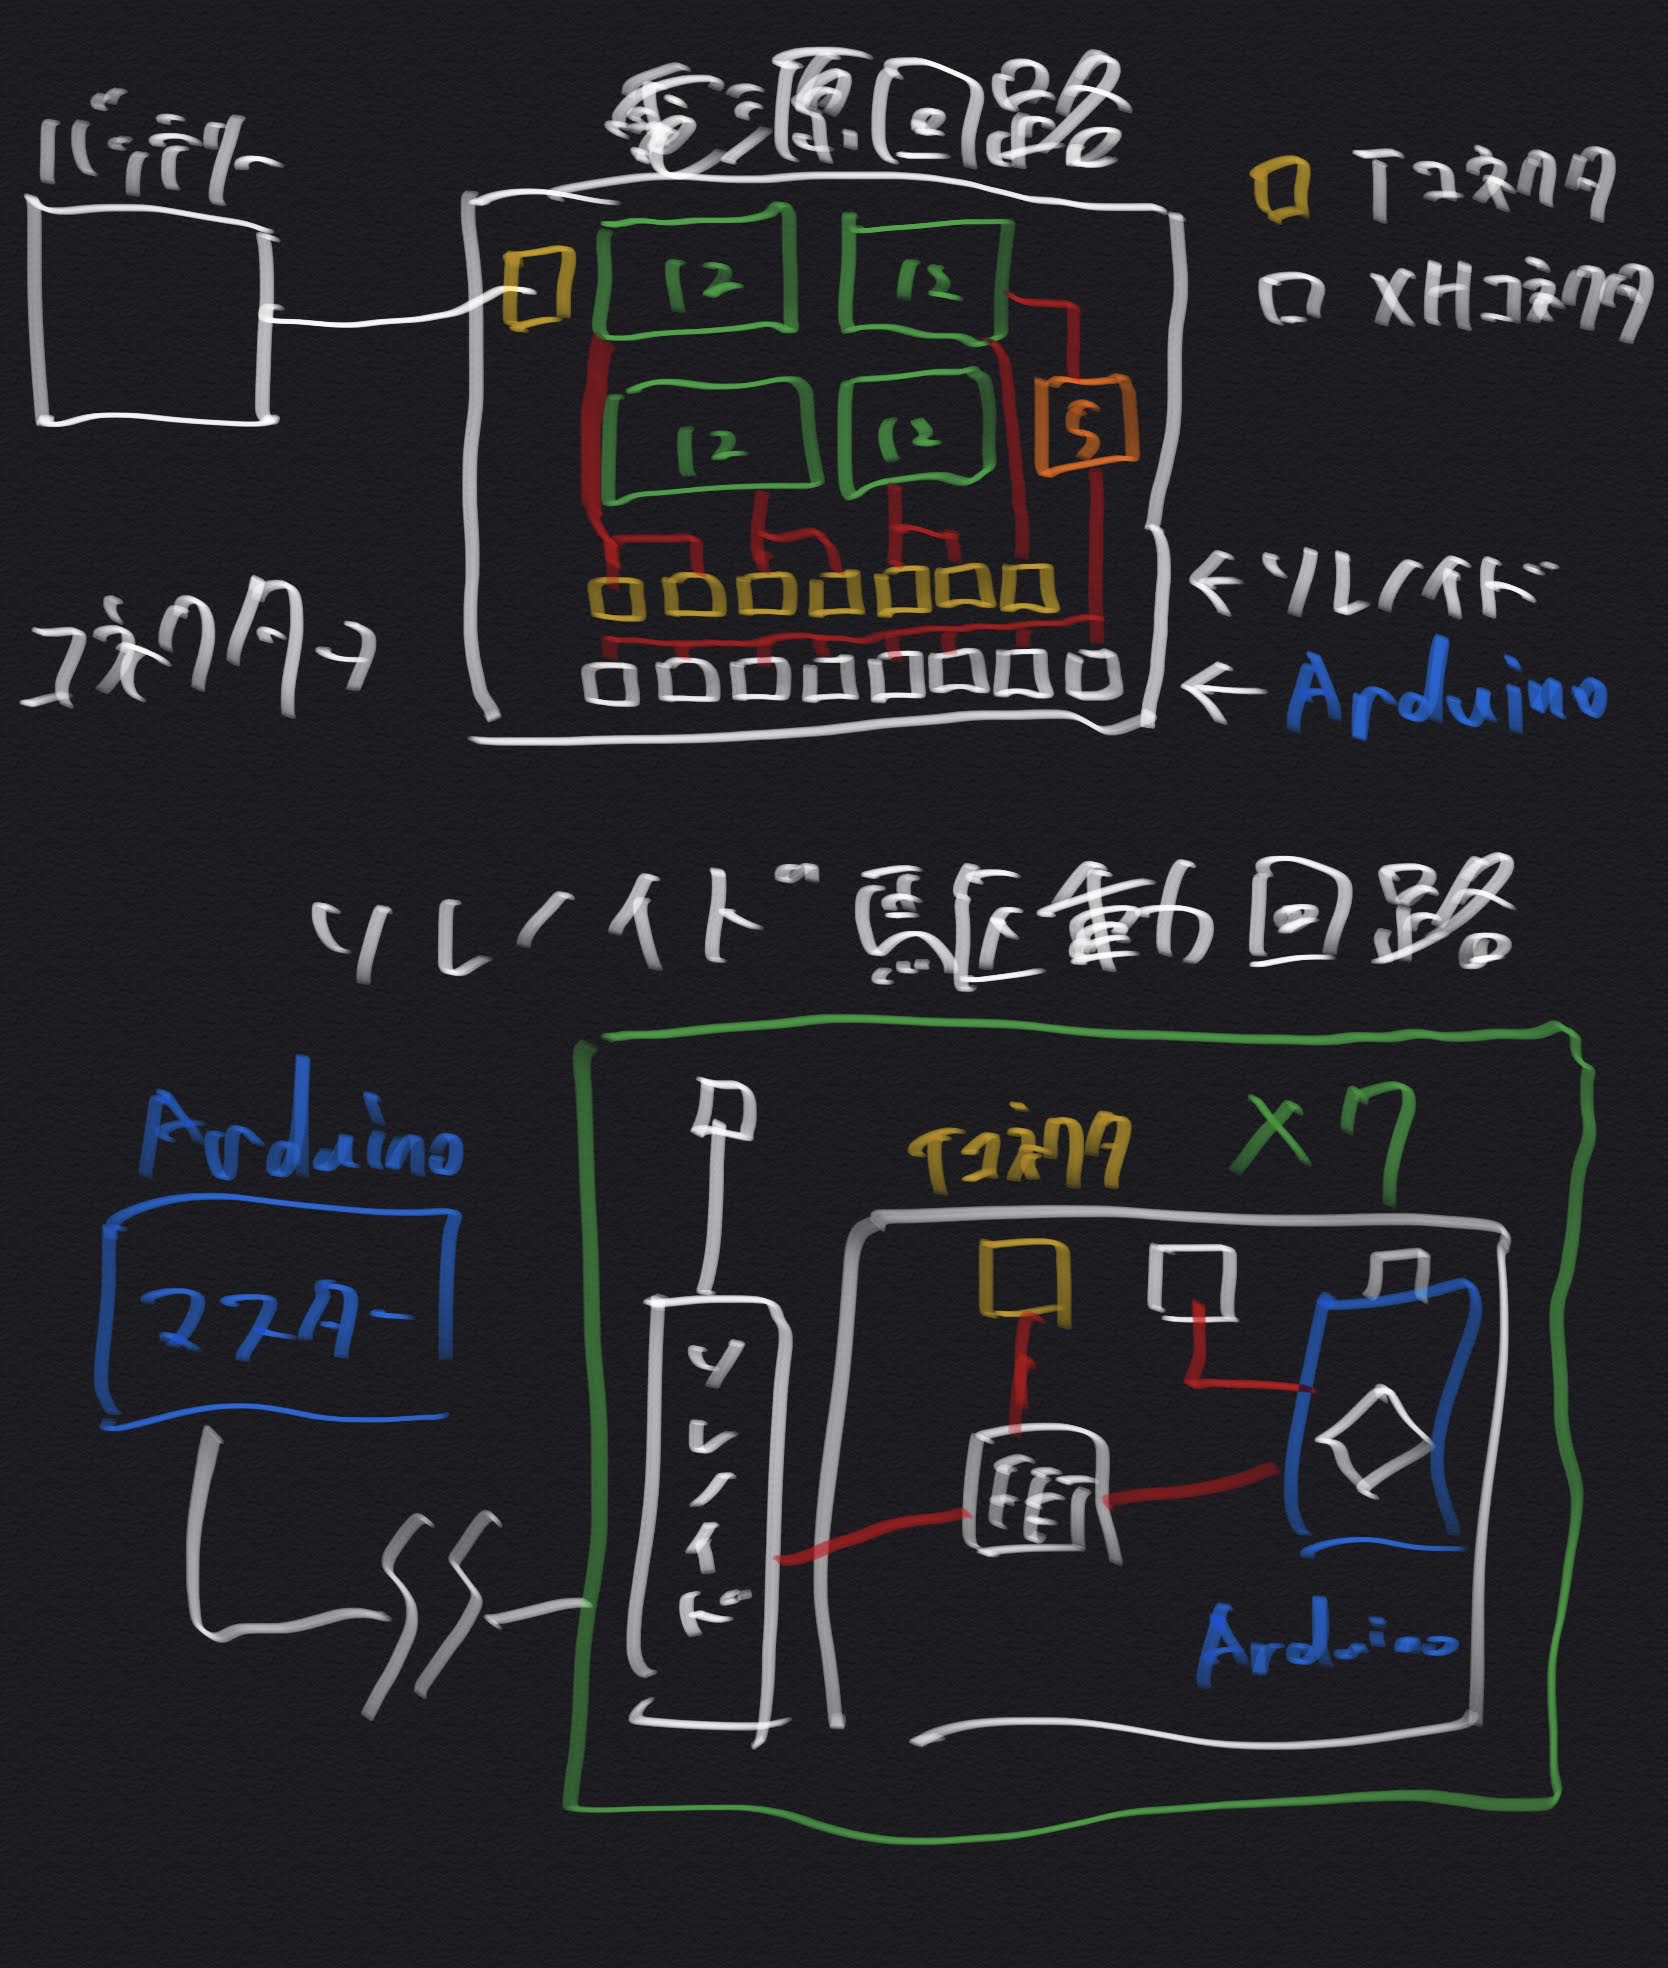 電源回路
バッテリー
Tコネクタ
XHコネクタ
12
12
12
12
5
コネクター
←ソレノイド
←Arduino
ソレノイド駆動回路
Arduino
マスター
Tコネクタ
×7
ソレノイド
FET
Arduino